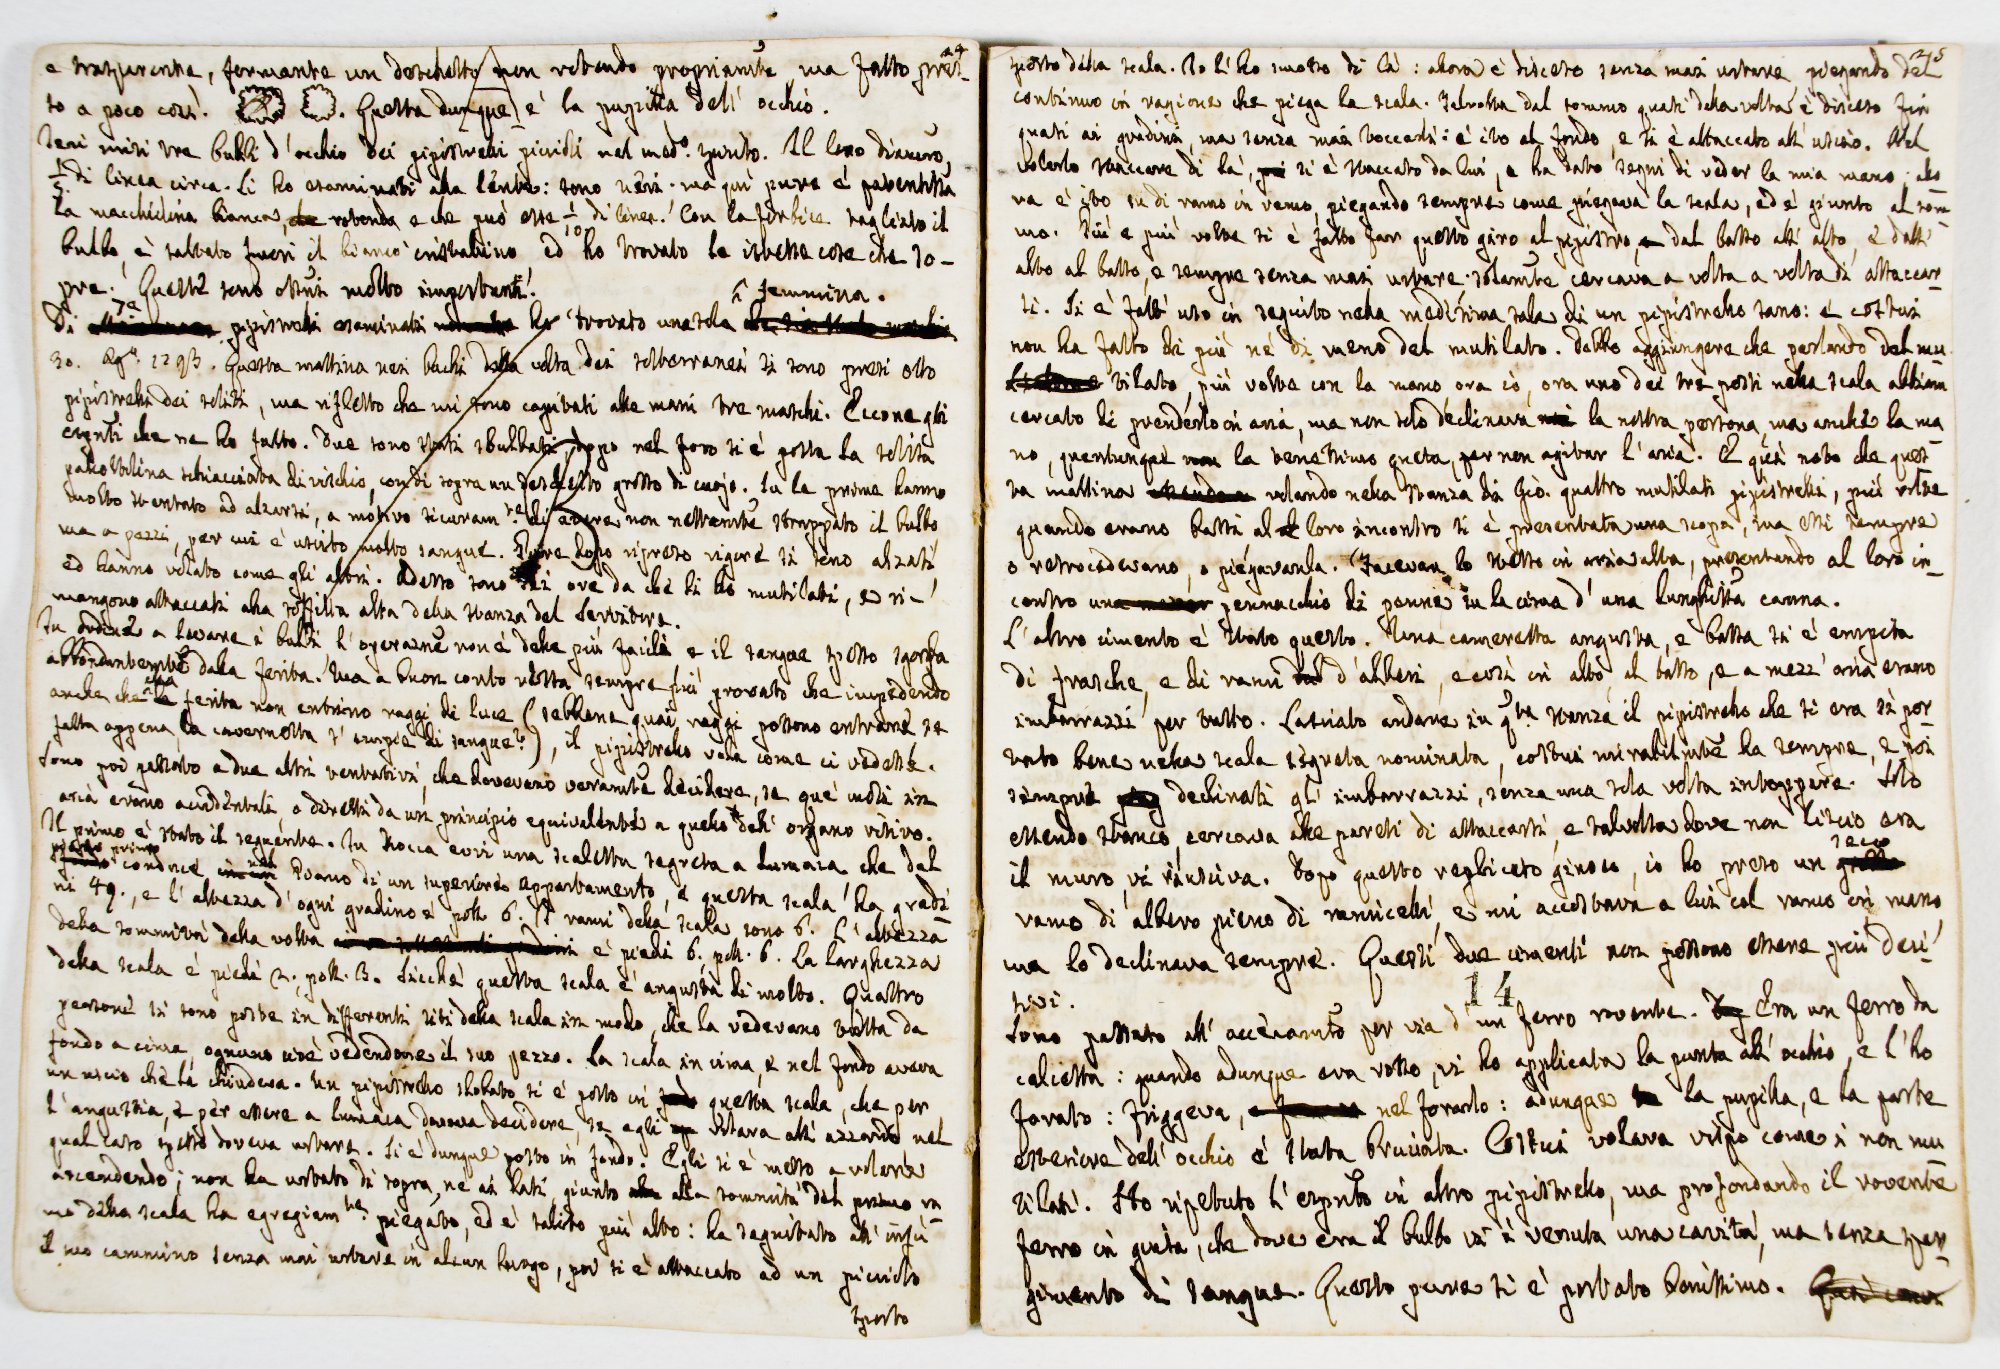 24
e trasparente, formante un deschetto non rotondo propriam.te, ma fatto pres-
to a poco così. Questa dunque è la pupilla dell'occhio.
Jeri misi tre bulbi d'occhio dei pipistrelli piccioli nel med.o spirito. Il loro diametro,
1/2 di linea circa. Li ho esaminati alla lente: sono neri. ma qui pure è patentiss.a
la macchiolina bianca, rotonda e che può esse 1/10 di linea. Con la forbice tagliato il
bulbo, è saltato fuori il bianco cristallino ed ho trovato le istesse cose che so-
pra. Queste sono molto importanti.
Di pipistrelli esaminati ho trovato una sola femmina.
30. Ag.o 1793. Questa mattina nei buchi della volta dei sotterranei si sono presi otto
pipistrelli dei soliti, ma rifletto che mi sono capitati alle mani tre maschi. Eccone gli
che ne ho fatto. Due sono stati sbulbati, dopo nel foro si è posta la solita
pallottolina schiacciata di vischio, con di sopra un deschetto grosso di cuojo. Su le prime hanno
molto stentato ad alzarsi, a motivo sicuram.te di avere non nettam.te strappato il bulbo
ma a pezzi, per cui è uscito molto sangue. Pure dopo ripreso vigore si sono alzati
ed hanno volato come gli altri. Adesso sono sei ore da che li ho mutilati, e ri-
mangono attaccati alla soffitta alta della stanza del Servitore.
In ordine a levare i bulbi l'operaz.ne non è delle più facili e il sangue spesso sgorga
abbondantem.te dalla ferita. Ma a buon conto resta sempre più provato che impedendo
anche che alla ferita non entrino raggi di luce (sebbene quai raggi possono entrare se
fatta appena, la cavernetta s'empie di sangue?), il pipistrello vola come ci vedesse.
Sono poi passato a due altri tentativi, che dovevano veram.te decidere, se que' moti in
aria erano accidentali, o diretti da un principio equivalente a quello dell'organo visivo.
Il primo è stato il seguente. In Rocca evvi una scaletta segreta a lumaca che dal
piano primo conduce ad piano di un superiore appartamento, e questa scala ha gradi-
ni 49., e l'altezza d'ogni gradino è poll. 6. I rami della scala sono 6. L'altezza
della sommità della volta è piedi 6., poll. 6. La larghezza
della scala è piedi 2., poll. 3. Sicchè questa scala è angusta di molto. Quattro
persone si sono poste in differenti siti della scala in modo, che la vedevano tutta da
fondo a cima, ognuno cioè vedendone il suo pezzo. La scala in cima, e nel fondo aveva
un uscio che la chiudeva. Un pipistrello sbulbato si è posto in questa scala, che per
l'angustia, e per essere a lumaca doveva decidere, se egli urtava all'azzardo nel
qual caso spesso doveva urtare. Si è dunque posto in fondo. Egli si è messo a volare
ascendendo; non ha urtato di sopra, ne ai lati, giunto alla sommità del primo ra-
mo della scala ha egregiam.te piegato, ed è salito più alto: ha seguitato all'insù
il suo cammino senza mai urtare in alcun luogo, poi si è attaccato ad un picciolo
sporto
25
sporto della scala. Io l'ho smosso di là: allora è disceso senza mai urtare piegando del
continuo in ragione che piega la scala. Talvolta dal sommo quasi della volta è disceso fin
quasi ai gradini, ma senza mai toccarli: è ito al fondo, e si è attaccato all'uscio. Nel
volerlo staccare di là, si è staccato da lui, e ha dato segni di veder la mia mano; allo-
ra è ito su di ramo in ramo, piegando sempre come piegava la scala, ed è giunto al som-
mo. Più e più volte si è fatto far questo giro al pipistrello, dal basso all'alto, e dall'
alto al basso, e sempre senza mai urtare. solam.te cercava a volta a volta di attaccar-
si. Si è fatt'uso in seguito nella medesima scala di un pipistrello sano: e costui
non ha fatto di più nè di meno del mutilato. Debbo aggiungere che parlando del mu-
tilato, più volte con la mano ora io, ora uno dei tre posti nella scala abbiam
cercato di prenderlo in aria, ma non solo declinava la nostra persona, ma anche la ma-
no, quantunque la tenessimo queta, per non agitar l'aria. E quì noto che ques-
ta mattina volando nella stanza di Giò. quattro mutilati pipistrelli, più volte
quando erano bassi al loro incontro si è presentata una scopa, ma essi sempre
o retrocedevano, o piegavanla. Facevan lo stesso in aria alta, presentando al loro in-
contro pennacchio di penne su la cima d'una lunghissa canna.
L'altro cimento è stato questo. Una cameretta angusta, e bassa si è empita
di frasche, e di rami d'alberi, e così in alto, al basso, e a mezz'aria erano
imbarrazzi per tutto. Lasciato andare in q.ta stanza il pipistrello che si era sì por-
tato bene nella scala segreta nominata, costui mirabilm.te ha sempre, e poi
sempre declinati gl'imbarrazzi, senza una sola volta intoppare. Solo
essendo stanco cercava alle pareti di attaccarsi, e talvolta dove non liscio era
il muro vi riusciva. Dopo questo replicato giuoco, io ho preso un secco
ramo di albero pieno di ramicelli, e mi accostava a lui col ramo in mano,
ma lo declinava sempre. Questi due cimenti non possono essere più deci-
sivi.
14
Sono passato all'accecam.to per via d'un ferro rovente. Era un ferro da
calcetta: quando adunque era rosso, vi ho applicata la punta all'occhio, e l'ho
forato: friggeva, nel forarlo: adunque la pupilla, e la parte
esteriore dell'occhio è stata bruciata. Costui volava vispo come i non mu-
tilati. Ho ripetuto l'esp.to in altro pipistrello, ma profondando il rovente
ferro in guisa, che dove era il bulbo vi è venuta una cavità, ma senza spar-
gimento di sangue. Questo pure si è portato benissimo.